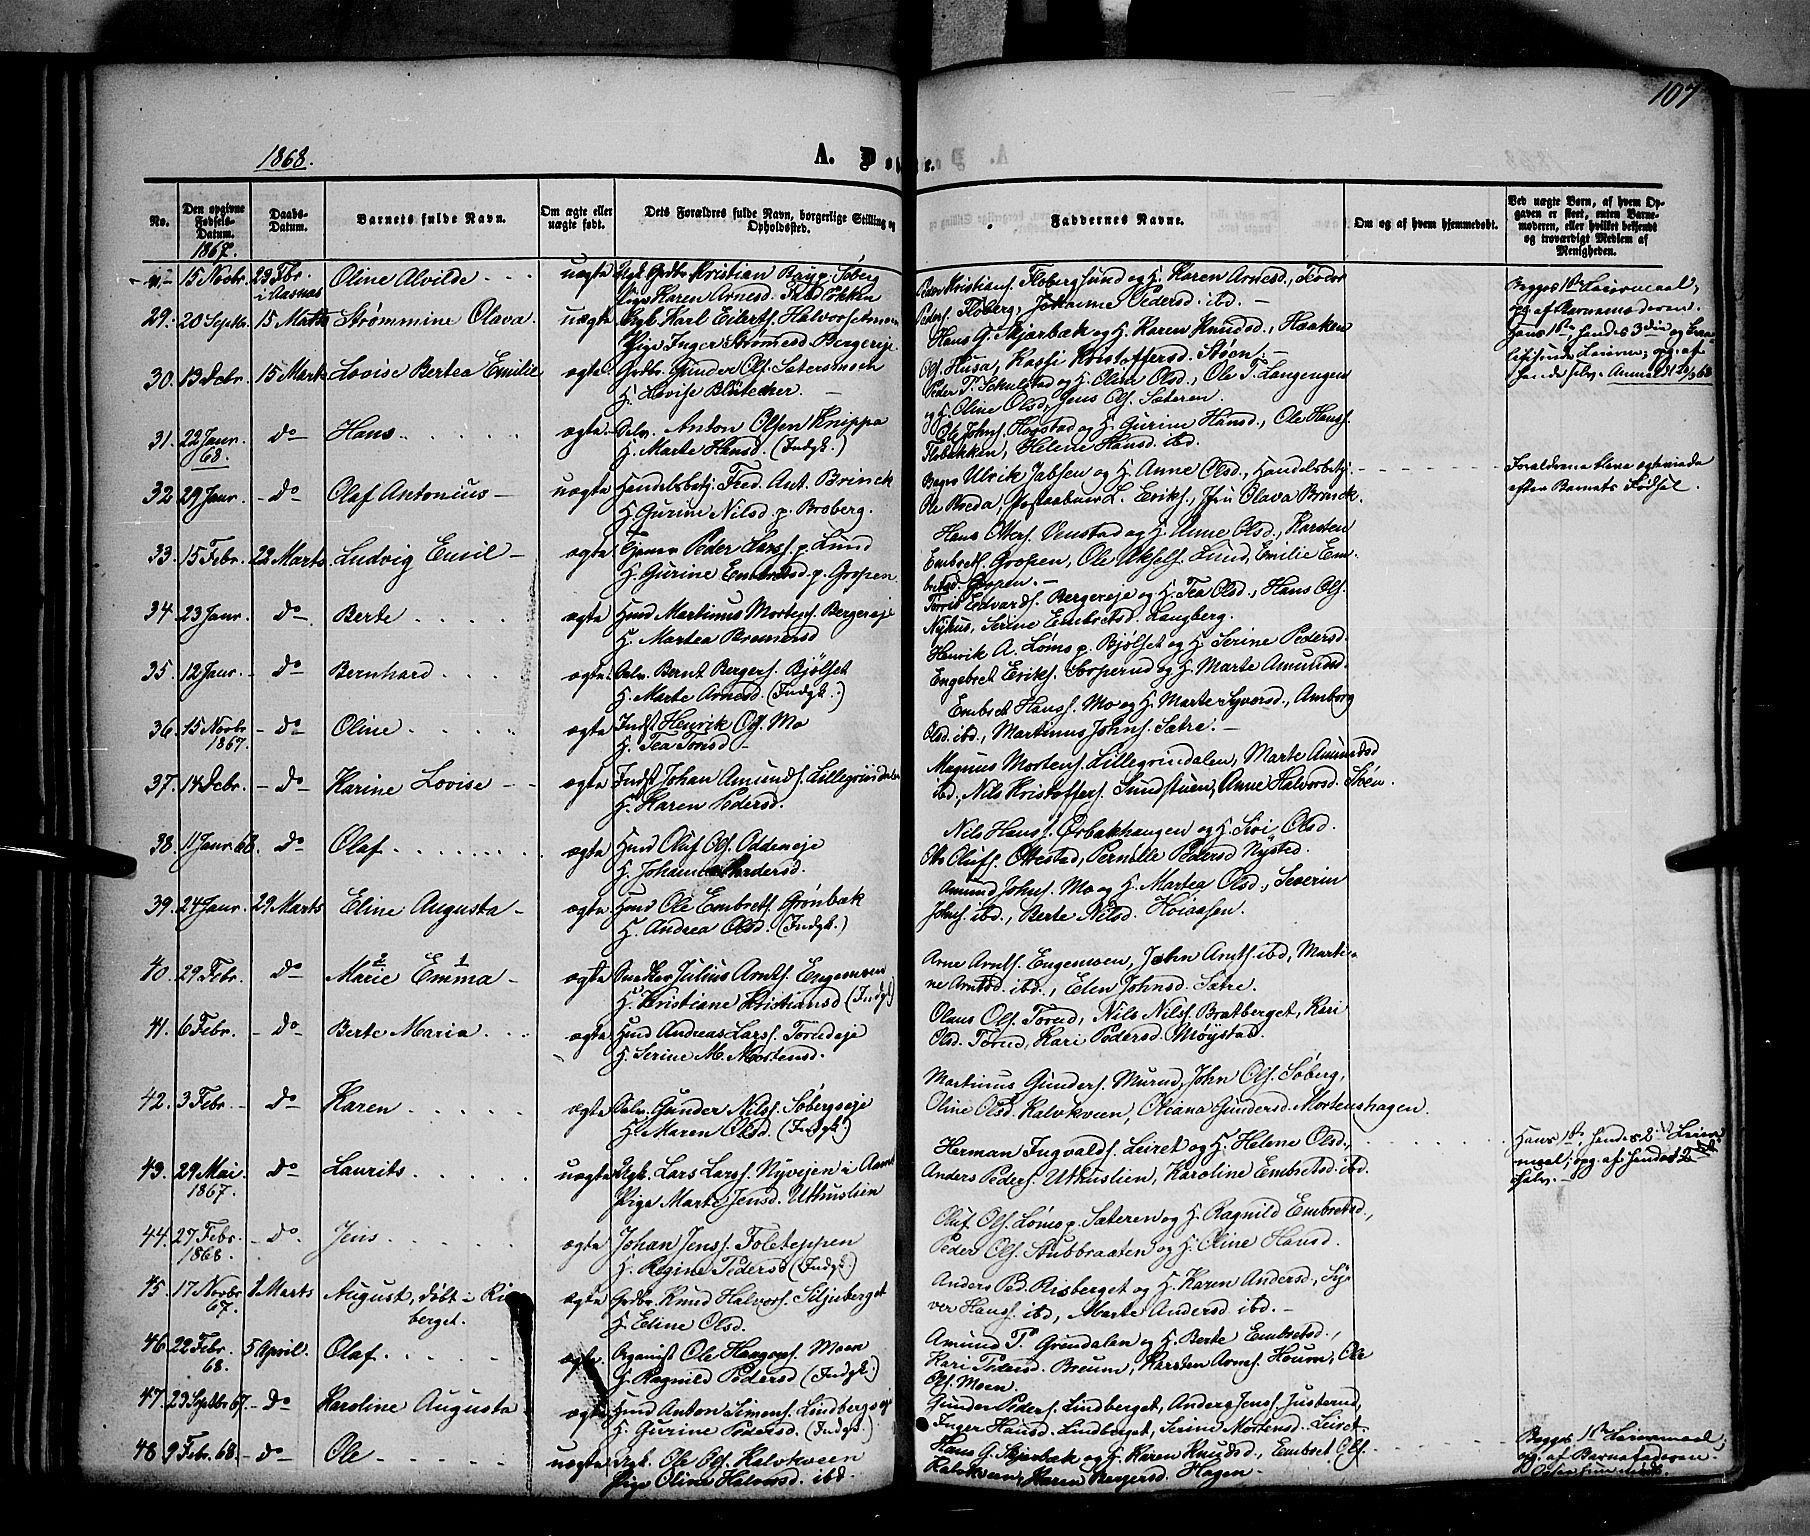 107
1868.
A. Døbte.
No.
Den opgivne Fødsels-Datum.
1867.
Daabs-Datum.
Barnets fulde Navn.
Om ægte eller uægte født.
Dets Forældres fulde Navn, borgerlige Stilling og Opholdssted.
Faddernes Navne.
Om og af hvem hjemmedøbt.
Ved uægte Børn, af hvem Opgaven er skeet, enten Barnemoderen, eller hvilket bekjendt og troværdigt Medlem af Menigheden.
15 Novbr. 23 Fbr. i Aasnæs Oline Alvilde uægte Ungk. Grdbr Kristian
Pige Karen Arnesd.
29. 20 Septbr. 15 Marts Strømmine Olava. uægte Ungk. Karl Eilertf. Halvorsetmoen
Pige Inger Strømesd. Bergereje
Hans G. Skjærbæk og H. Karen Knudsd., Haaken
Olf. Husa, Kari Kristoffersd. Støen.
30. 13 Decbr. 15 Marts Lovise Bertea Emilie ægte Grdbr. Gunder Olf. Sætersmoen
H. Lovise Blütecher.
Peder T. Skulstad og H. Olia Olsd., Ole T. Langengen
og H. Oline Olsd, Jens Olf. Sæteren.
31. 22 Janr. 68. do Hans ægte Selv. Anton Olsen Knippa
H. Marte Hansd. (Indgk.)
Ole Johnf. Hogstad og H. Gurine Hansd., Ole Hansf.
Flobakken, Helene Hansd. ibd.
32. 29 Janr. do Olaf Antonius uægte Handelsbetj. Fred. Ant. Brinck
H. Gurine Nilsd. p. Broberg.
Ulrik Jahsen og H. Anne Olsd., Handelsbetj.
Ole Breda, Postaabner L. Eriksf., Jfr. Olava Brinck.
Forældrene bleve ægteviede
efter Barnets Fødsel.
33. 15 Febr. 22 Marts Ludvig Emil ægte Peder Larsf. p. Lund
H. Gurine Embretsd. p. Gropen
Hans Ottersf. Venstad og H. Anne Olsd., Karsten
Embretf. Gropen, Ole Akself. Lund, Emilie Em-
bretsd. Gropen.
34. 23 Janr. do Berte ægte Husmd Martinus Mortenf. Bergereje
H. Martea Bremersd
Torris Edvardf. Bergereje og H. Tea Olsd., Hans Olf.
Nyhus, Serine Embretsd. Langberg.
35. 12 Janr. do Bernhard ægte Selv. Bernt Bergerf. Bjølset
H. Marte Arnesd. (Indgk.)
Henrik A. Lømo p. Bjølset og H. Serine Pedersd.
Engebret Eriksf. Sorperud og H. Marte Amundsd.
36. 15 Novbr. 1867. do Oline ægte Indst Henrik Olf. Mo
H. Tea Torisd
Embret Hansf. Mo og H. Marte Syversd., Amborg
Olsd. ibd., Martinus Johnf. Sætre.
37. 14 Decbr. do Karine Lovise ægte Indst Johan Amundf. Lillegrindalen
H. Karen Pedersd.
Magnus Mortenf. Lillegrindalen, Marte Amundsd
ibd., Nils Kristofferf. Sundstuen, Anne Halvorsd. Støen.
38. 11 Janr. 68. do Olaf ægte Husmd Oluf Olf. Oddeneje
H. Johanne Andersd.
Nils Hansf. Ørbækhaugen og H. Siri Olsd.
Ole Oluff. Ottestad, Pernille Pedersd Nysted.
39. 24 Janr. 29 Marts Eline Augusta ægte Husmd Ole Embretf. Grønbæk
H. Andrea Olsd. (Indgk.)
Amund Johnf. Mo og H. Martea Olsd., Severin
Johnf. ibd., Berte Nilsd. Hoiaasen.
40. 29 Febr. do 2 1 Marie Emma ægte Snedker Julius Arntf. Engemoen
H. Kristiane Kristiansd (Indgk.)
Arne Arntf. Engemoen, John Arntf. ibd, Marti-
ne Arntsd. ibd., Elen Johnsd. Sætre.
41. 6 Febr. do Berte Maria ægte Husmd Andreas Larsf. Torudeje
H. Serine M. Mortensd.
Olaus Olf. Torud, Nils Nilsf. Bratberget, Kari
Olsd. Torud, Kari Pedersd. Møystad.
42. 3 Febr. do Karen ægte Selv. Gunder Nilsf. Søbergseje
H. Maren Olsd. (Indgk.)
Martinus Gunderf. Murud, John Olf. Søberg,
Oline Olsd. Kalvkveen, Oliana Gundersd. Mortenshagen.
43. 29 Mai 1867. do Laurits uægte Ungk. Lars Larsf. Nyvejen i Aamot
Pige Marte Jensd. Utkuslien
Herman Ingvaldf. Leiret og H. Helene Olsd.,
Anders Pederf. Utkuslien, Karoline Embretsd. ibd.
Hans 1ste, hendes 2det Leier-
maal; opg. af hende
selv.
44. 27 Febr. 1868. do Jens ægte Johan Jensf. Foleteppen
H. Regine Pedersd (Indgk.)
Oluf Olf. Lømo p. Sæteren og H. Ragnild Embretsd.,
Peder Olf. Stubbraaten og H. Oline Hansd.
45. 17 Novbr. 67. Marts August, døbt i Risberget. ægte Grdbr. Knud Halvorf. Siljuberget
H. Eline Olsd.
Anders Pd. Risberget og H. Karen Andersd., Sy-
ver Hansf. ibd, Marte Andersd ibd.
46. 22 Febr. 68. 5 April. Olaf. ægte Organist Ole Haagenf. Moen
H. Ragnild Pedersd (Indgk.)
Amund P. Grøndalen og H. Berte Embretsd.,
Kari Pedersd. Breum, Karsten Arnef. Houm, Ole
Olf. Moen.
47. 23 Septbr 67. do Karoline Augusta ægte Husmd Anton Simenf. Lindbergseje
H. Gurine Pedersd. (Indgk.)
Gunder Pederf. Lindberget, Anders Jensf. Justerud,
Inger Hansd. Lindberget, Serine Mortensd. Leiret.
48. 9 Febr. 68. do Ole uægte Ungk. Ole Olf. Kalvkveen
Pige Oline Halvorsd. ibd.
Hans G. Skjærbæk og H. Karen Knudsd., Embret Olf.
Kalvkveen, Karen Bergersd. Hagen.
Begges 1ste Leiermaal,
opg. af Barnefaderen.